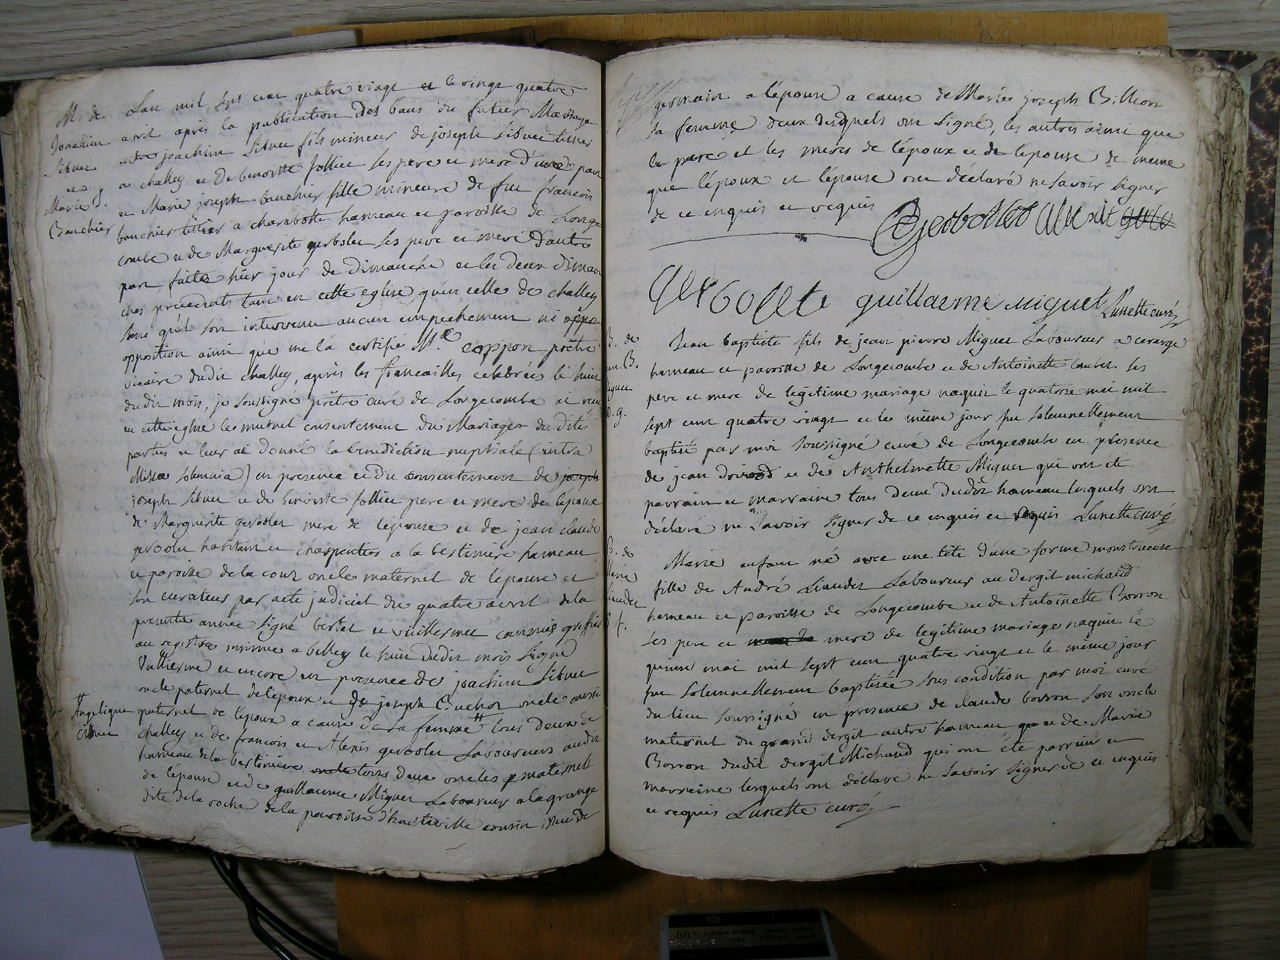 M. de
Joachim
Sibuet
et
Marie J.
Bouchier
Lan mil sept cent quatre vingt et le vingt quatre
avril après la publication des bans du futur Mariage
entre joachim Sibuet fils mineur de joseph Sibuet
a challey et de benoitte folliet ses pere et mere d'une part
et Marie joseph bouchier fille mineure de feu françois
bouchier a charabotte hameau et paroisse de Longe
combe et de Marguerite gerbolet ses pere et mere d'autre
part faite hier jour de dimanche et les deux diman
ches précédents tant en cette eglise qu'en celle de challey
sans qu'il soit intervenu aucun empechement ni oppo
opposition ainsi que me la certifié Mr. coppon prêtre
vicaire dudit challey, après les fiancailles celebrées le huit
dudit mois, je soussigné prêtre curé de Longecombe ai reçu
en cette eglise le mutuel consentement du Mariage des dites
parties et leur ai donné la benediction nuptiale (intra
Missæ solemnia) en presence et du consentement de joseph
joseph Sibuet et de benoitte folliet pere et mere de l'epoux
de Marguerite gerbolet mere de l'epouse et de jean claude
gerbolet habitant et charpentier a la bertiniere hameau
et paroisse de la couz oncle maternel de l'epouse et
son curateur par acte judiciel du quatre avril de la
presente année signé bertet et vuillermet commis greffier
au registre insinué a belley le huit dudit mois signé
et encore en presence de joachim Sibuet
oncle paternel de l'epoux et de joseph Cuchet oncle aussi
# Angelique
Sibuet
paternel de l'epoux a cause de sa femme # tous deux de
challey et de francois et Alexis gerbolet Laboureurs audit
hameau de la bertiniere oncle tous deux oncles maternels
de l'epouse et de guillaume Miguet Laboureur a la grange
dite de la roche de la paroisse d'hauteville cousin issu de
germain a l'epouse a cause de Marie joseph Billion
sa femme, deux desquels ont signé, les autres ainsi que
le pere et les meres de l'époux et de l'epouse de meme
que l'époux et l'epouse ont déclaré ne savoir signer
de ce enquis et requis
gerbollet Alexit gerbo
Gerbollet guillaeme miguet Lunette curé
B. de
jean B.
Miguet
D. g.
Jean baptiste fils de jean pierre Miguet Laboureur a cerarge
hameau et paroisse de Longecombe et de Antoinette ses
pere et mere de legitime mariage naquit le quatorze mai mil
sept cent quatre vingt et le même jour fut solemnellement
baptisé par moi soussigné curé de Longecombe en presence
de jean et de Anthelmette Miguet qui ont été
parrain et marraine tous deux dudit hameau lesquels ont
déclaré ne savoir signer de ce enquis et requis Lunette curé
B. de
Marie
Liaudet
Marie enfant né avec une tête d'une forme monstrueuse
fille de André Liaudet Laboureur au dergit michaud
hameau et paroisse de Longecombe et de Antoinette Borron
ses pere et mere de legitime mariage naquit le
quinze mai mil sept cent quatre vingt et le même jour
fut solemnellement baptisée sous condition par moi curé
du lieu soussigné en presence de claude borron son oncle
maternel du grand dergit autre hameau et de Marie
Borron dudit dergit Michaud qui ont été parrain et
marraine lesquels ont déclaré ne savoir signer de ce enquis
et requis Lunette curé